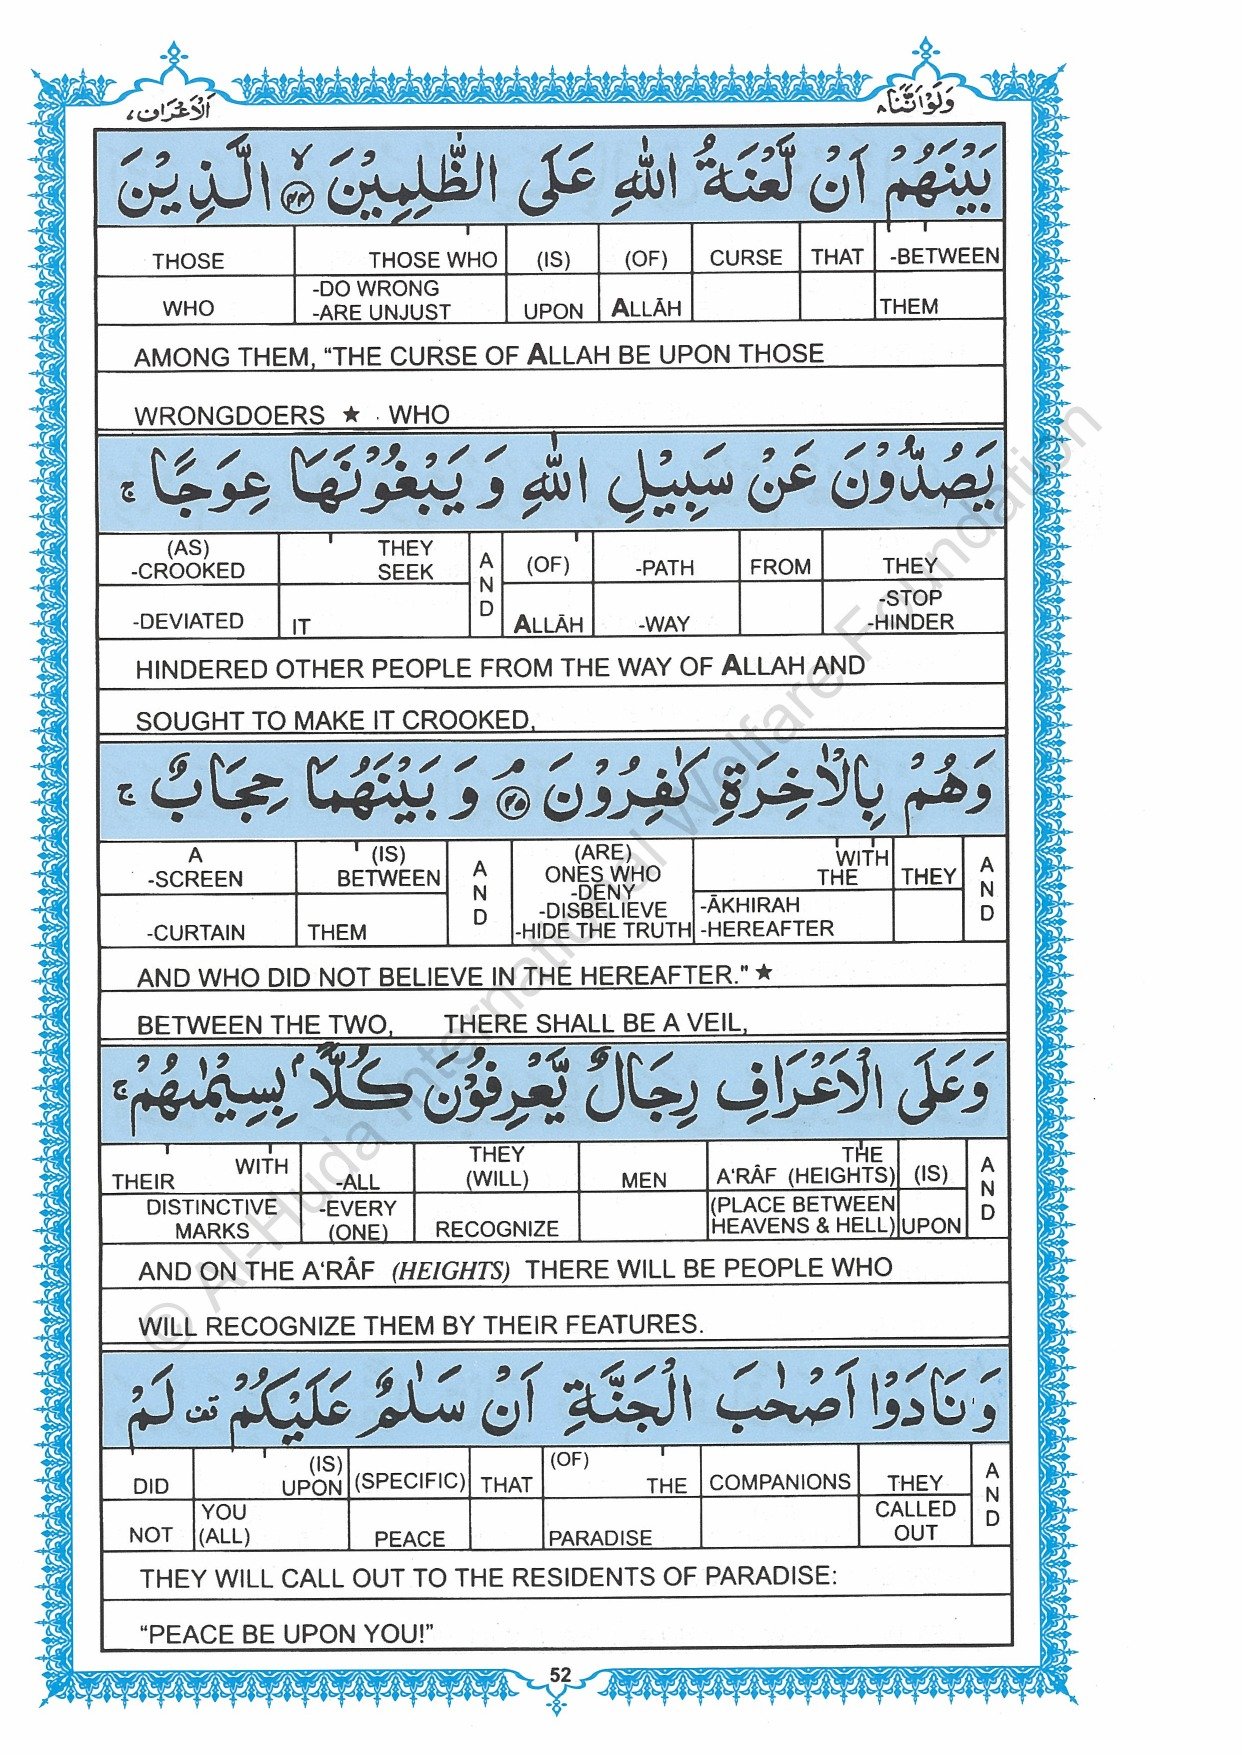 وَلَوْ اَنَّنَا ۸
اَلْاَعْرَاف ۷
بَيْنَهُمْ اَنْ لَّعْنَةُ اللّٰهِ عَلَى الظّٰلِمِيْنَ ۙ﴿۴۴﴾ الَّذِيْنَ
THOSE THOSE WHO (IS) (OF) CURSE THAT -BETWEEN
WHO -DO WRONG -ARE UNJUST UPON ALLĀH THEM
AMONG THEM, “THE CURSE OF ALLAH BE UPON THOSE
WRONGDOERS ★ WHO
يَصُدُّوْنَ عَنْ سَبِيْلِ اللّٰهِ وَ يَبْغُوْنَهَا عِوَجًا ۚ
(AS) -CROOKED THEY SEEK AND (OF) -PATH FROM THEY
-DEVIATED IT ALLĀH -WAY -STOP -HINDER
HINDERED OTHER PEOPLE FROM THE WAY OF ALLAH AND
SOUGHT TO MAKE IT CROOKED,
وَهُمْ بِالْاٰخِرَةِ كٰفِرُوْنَ ۘ﴿۴۵﴾ وَ بَيْنَهُمَا حِجَابٌ ۚ
A -SCREEN (IS) BETWEEN AND (ARE) ONES WHO -DENY -DISBELIEVE -HIDE THE TRUTH WITH THE THEY AND
-CURTAIN THEM -ĀKHIRAH -HEREAFTER
AND WHO DID NOT BELIEVE IN THE HEREAFTER." ★
BETWEEN THE TWO, THERE SHALL BE A VEIL,
وَعَلَى الْاَعْرَافِ رِجَالٌ يَّعْرِفُوْنَ كُلًّۢا بِسِيْمٰىهُمْ ۚ
THEIR WITH -ALL THEY (WILL) MEN THE A‘RÂF (HEIGHTS) (IS) AND
DISTINCTIVE MARKS -EVERY (ONE) RECOGNIZE (PLACE BETWEEN HEAVENS & HELL) UPON
AND ON THE A‘RÂF (HEIGHTS) THERE WILL BE PEOPLE WHO
WILL RECOGNIZE THEM BY THEIR FEATURES.
وَ نَادَوْا اَصْحٰبَ الْجَنَّةِ اَنْ سَلٰمٌ عَلَيْكُمْ قف لَمْ
DID (IS) UPON (SPECIFIC) THAT (OF) THE COMPANIONS THEY AND
NOT YOU (ALL) PEACE PARADISE CALLED OUT
THEY WILL CALL OUT TO THE RESIDENTS OF PARADISE:
“PEACE BE UPON YOU!”
52
© Al-Huda International Welfare Foundation